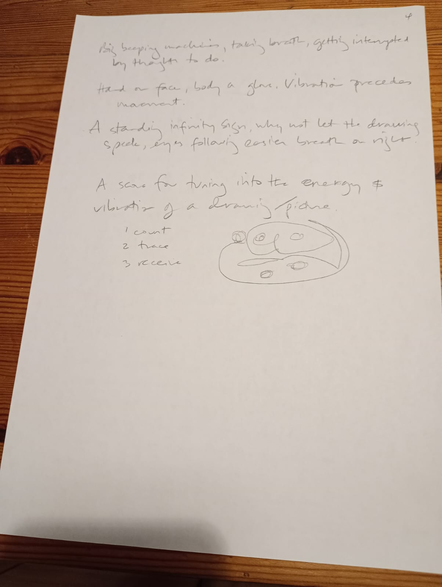 4
Big beeping machines, taking breath, getting interrupted
by thoughts to do.
Hand on face, body a glove. Vibration precedes
movement.
A standing infinity sign, why not let the drawing
speak, eyes following easier breath on right
A score for tuning into the energy &
vibration of a drawing/picture.
1 count
2 trace
3 receive